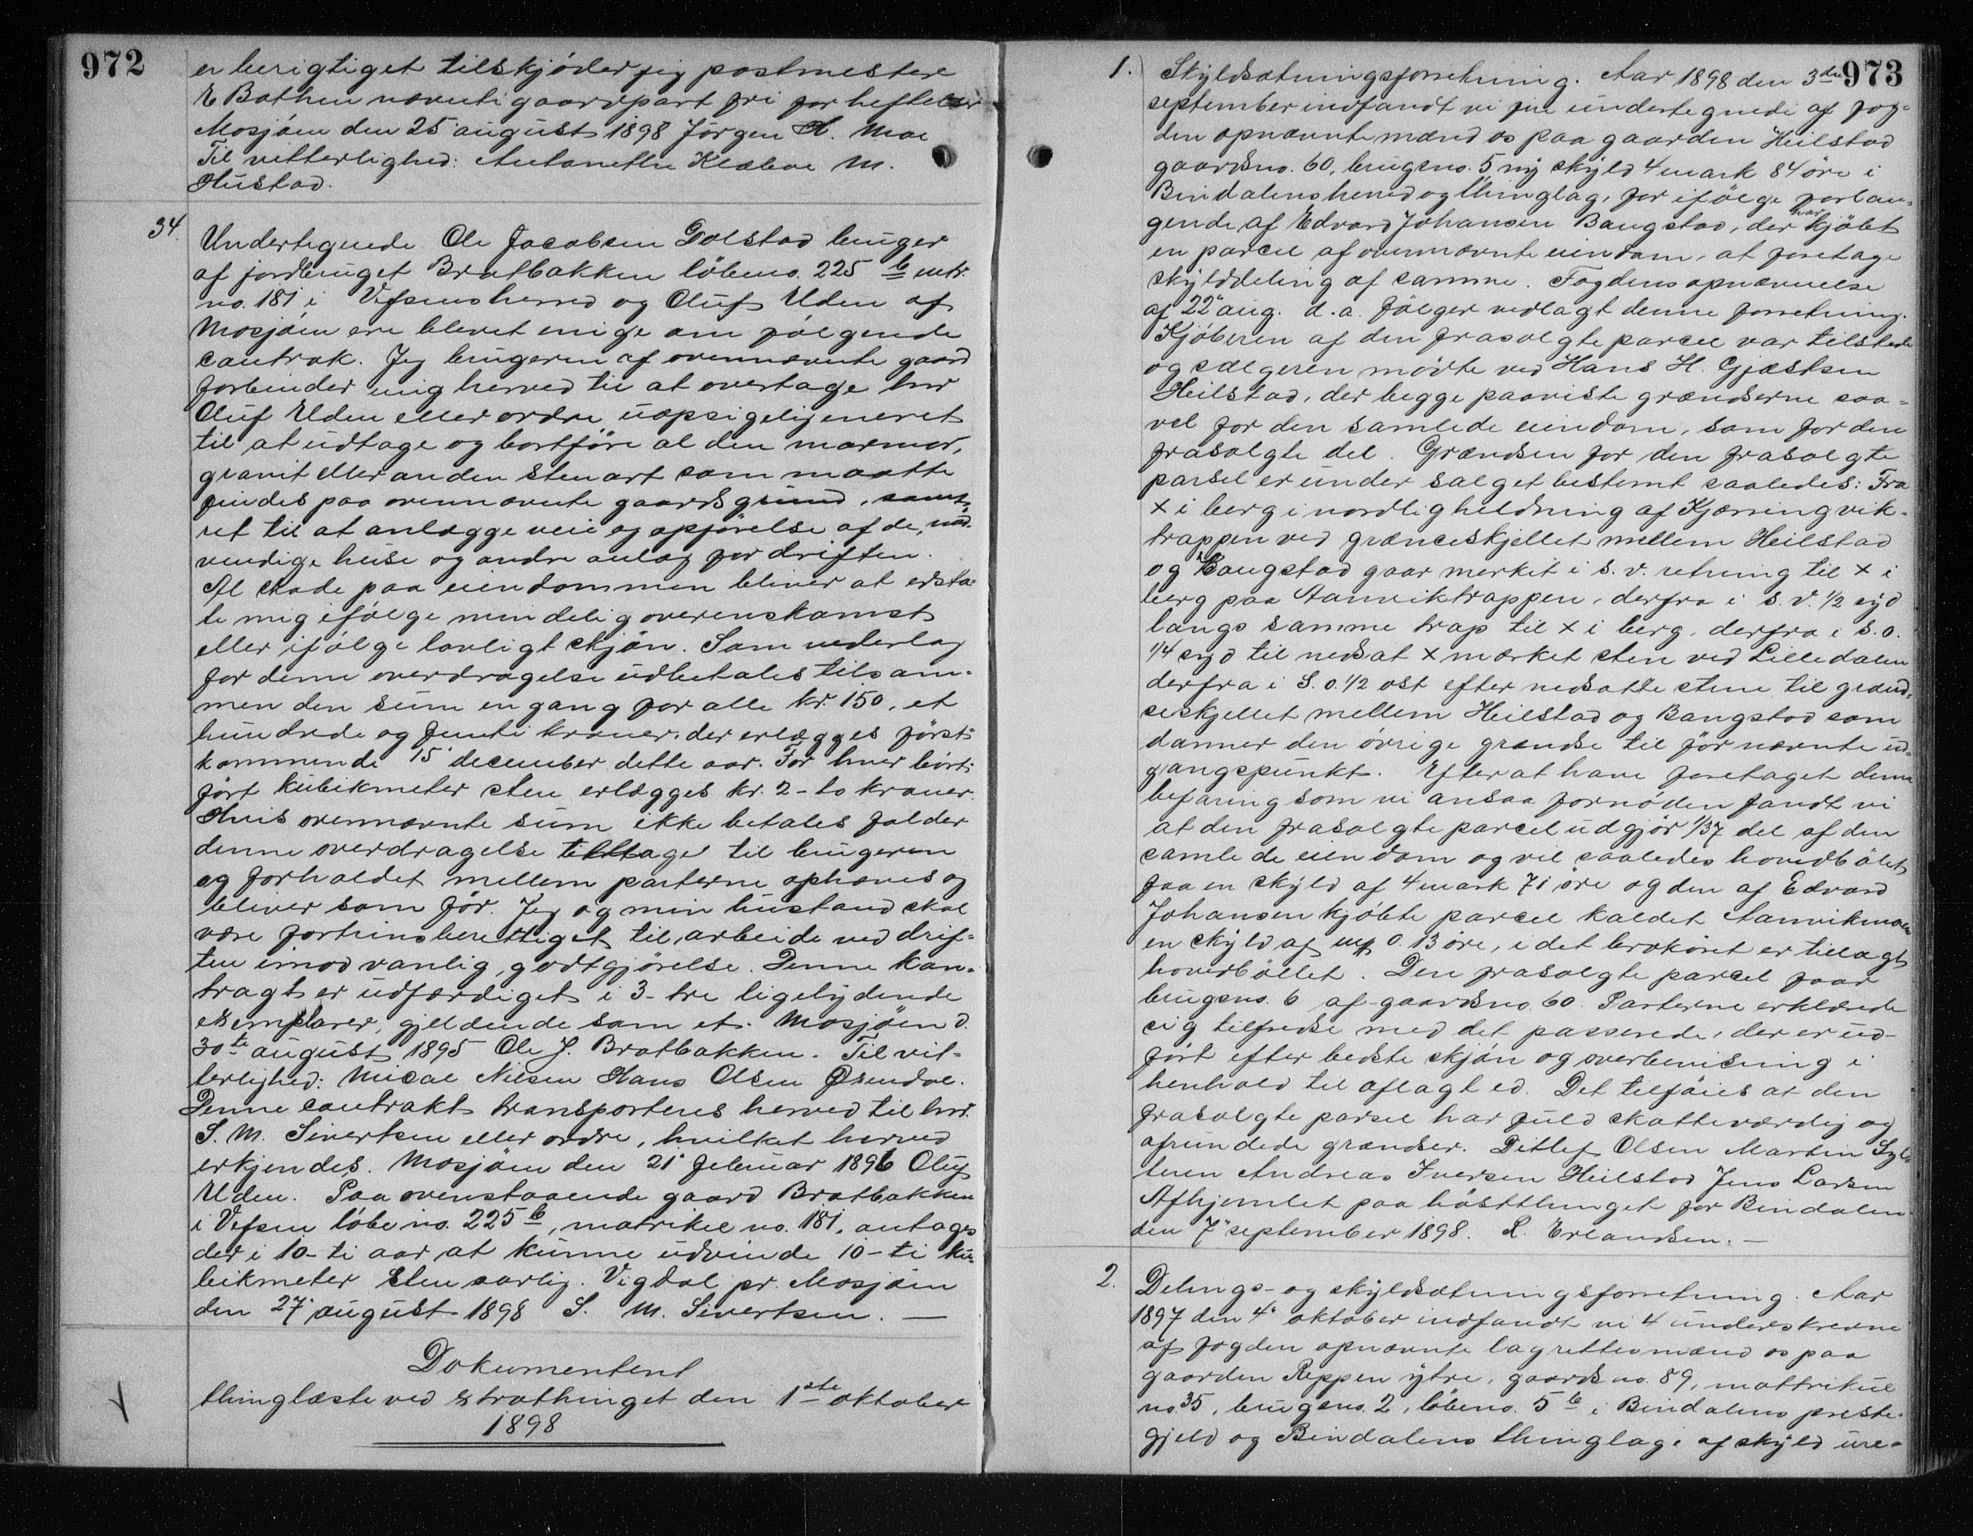 972
er berigtiget tilskjøder jeg postmestere
E Bathen nævnte gaardpart fri for heftelser
Mosjøen den 25 august 1898 Jørgen H. Moe
Til vitterlighed: Antonette Klæboe M.
Hustad.
34. Undertegnede Ole Jacobsen Dolstad bruger
af jordbruget Bratbakken løbeno. 225 b mtr.
no. 181 i Vefsens herred og Oluf Uden af
Mosjøen ere blevet enige om følgende
contrak. Jeg brugeren af ovennævnte gaard
forbinder mig herved til at overtage hrr
Oluf Uden eller ordre uopsigelig eneret
til at udtage og bortføre al den marmor,
granit eller anden stenart som maatte
findes paa ovennævnte gaards grund, samt
ret til at anlægge veie og opførelse af de nød-
vendige huse og andre anlæg for driften.
Al skade paa eiendommen bliver at ersta-
te mig ifølge mindelig overenskomst
eller ifølge lovligt skjøn. Som vederlag
for denne overdragelse udbetales tilsam-
men den sum en gang for alle kr. 150, et
hundrede og femti kroner, der erlægges først-
kommende 15 december dette aar. For hver bort-
ført kubikmeter sten erlægges kr. 2 - to kroner.
Hvis ovennævnte sum ikke betales falder
denne overdragelse tilbage til brugeren
og forholdet mellem parterne ophæves og
bliver som før. Jeg og min husstand skal
være fortrinsberettiget til arbeide ved drif-
ten imod vanlig godtgjørelse. Denne kon-
tragt er udfærdiget i 3 - tre ligelydende
exemplarer, gjeldende som et. Mosjøen d.
30te august 1895 Ole J. Bratbakken. Til vit-
terlighed: Micael Nilsen Hans Olsen Øxendal.
Denne contrakt transporteres herved til hrr.
S. M. Sivertsen eller ordre, hvilket herved
erkjendes. Mosjøen den 21 februar 1896 Oluf
Uden. Paa ovenstaaende gaard Bratbakken
i Vefsen løbe no. 225 b, matrikel no. 181, antages
der i 10 - ti aar at kunne udvinde 10 - ti ku-
bikmeter sten aarlig. Vigdal pr. Mosjøen
den 27 august 1898 S. M. Sivertsen. —
Dokumentent
thinglæste ved extrathinget den 1ste oktober
1898
973
1. Skyldsætningsforretning. Aar 1898 den 3die
september indfandt vi fire undertegnede af fog-
den opnævnte mænd os paa gaarden Heilstad
gaardsno. 60, brugsno. 5 ny skyld 4 mark 84 øre i
Bindalens herred og thinglag, for ifølge forlan-
gende af Edvard Johansen Bangstad, der har kjøbt
en parcel af ovennævnte eiendom, at foretage
skylddeling af samme. Fogdens opnævnelse
af 22 aug. d.a. følger vedlagt denne forretning.
Kjøberen af den frasolgte parcel var tilstede
og sælgeren mødte ved Hans H. Gjæstsen
Heilstad, der begge paaviste grændserne saa-
vel for den samlede eiendom, som for den
frasolgte del. Grændsen for den frasolgte
parsel er under salget bestemt saaledes: Fra
x i berg i nordlig heldning af Kjærringvik-
trappen ved grænceskjellet mellem Heilstad
og Bangstad gaar merket i s. v. retning til x i
berg paa Aanviktrappen, derfra i s. v. 1/2 syd
langs samme trap til x i berg, derfra i s. o.
1/4 syd til nedsat x mærket sten ved Lilledalen
derfra i S. o. 1/2 ost efter nedsatte stene til grænd-
seskjellet mellem Heilstad og Bangstad som
danner den øvrige grændse til før nævnte ud-
gangspunkt. Efter at have foretaget denne
befaring som vi ansaa fornøden fandt vi
at den frasolgte parcel udgjør 1/37 del af den
samlede eiendom og vil saaledes hovedbølet
faa en skyld af 4 mark 71 øre og den af Edvard
Johansen kjøbte parcel kaldet Aanvikmoen
en skyld af mk 0.13 øre, i det brøkøret er tillagt
hovedbøllet. Den frasolgte parcel faar
brugsno. 6 af gaardsno. 60. Parterne erklærede
sig tilfredse med det passerede, der er ud-
ført efter bedste skjøn og overbevisning i
henhold til aflagt ed. Det tilføies at den
frasolgte parsel har fuld skatteværdig og
afrundede grændser. Ditlef Olsen Martin Syl-
teren Andreas Iversen Heilstad Jens Larsen
Afhjemlet paa høstthinget for Bindalen
den 7 september 1898. L. Erlandsen. —
2. Delings- og skyldsætningsforretning. Aar
1897 den 4 oktober indfandt vi 4 underskrevne
af fogden opnævnte lagrettesmænd os paa
gaarden Reppen ytre, gaards no. 89, mattrikul
no. 35, brugsno. 2, løbeno. 5 b i Bindalens preste-
gjeld og Bindalens thinglag, af skyld ure-